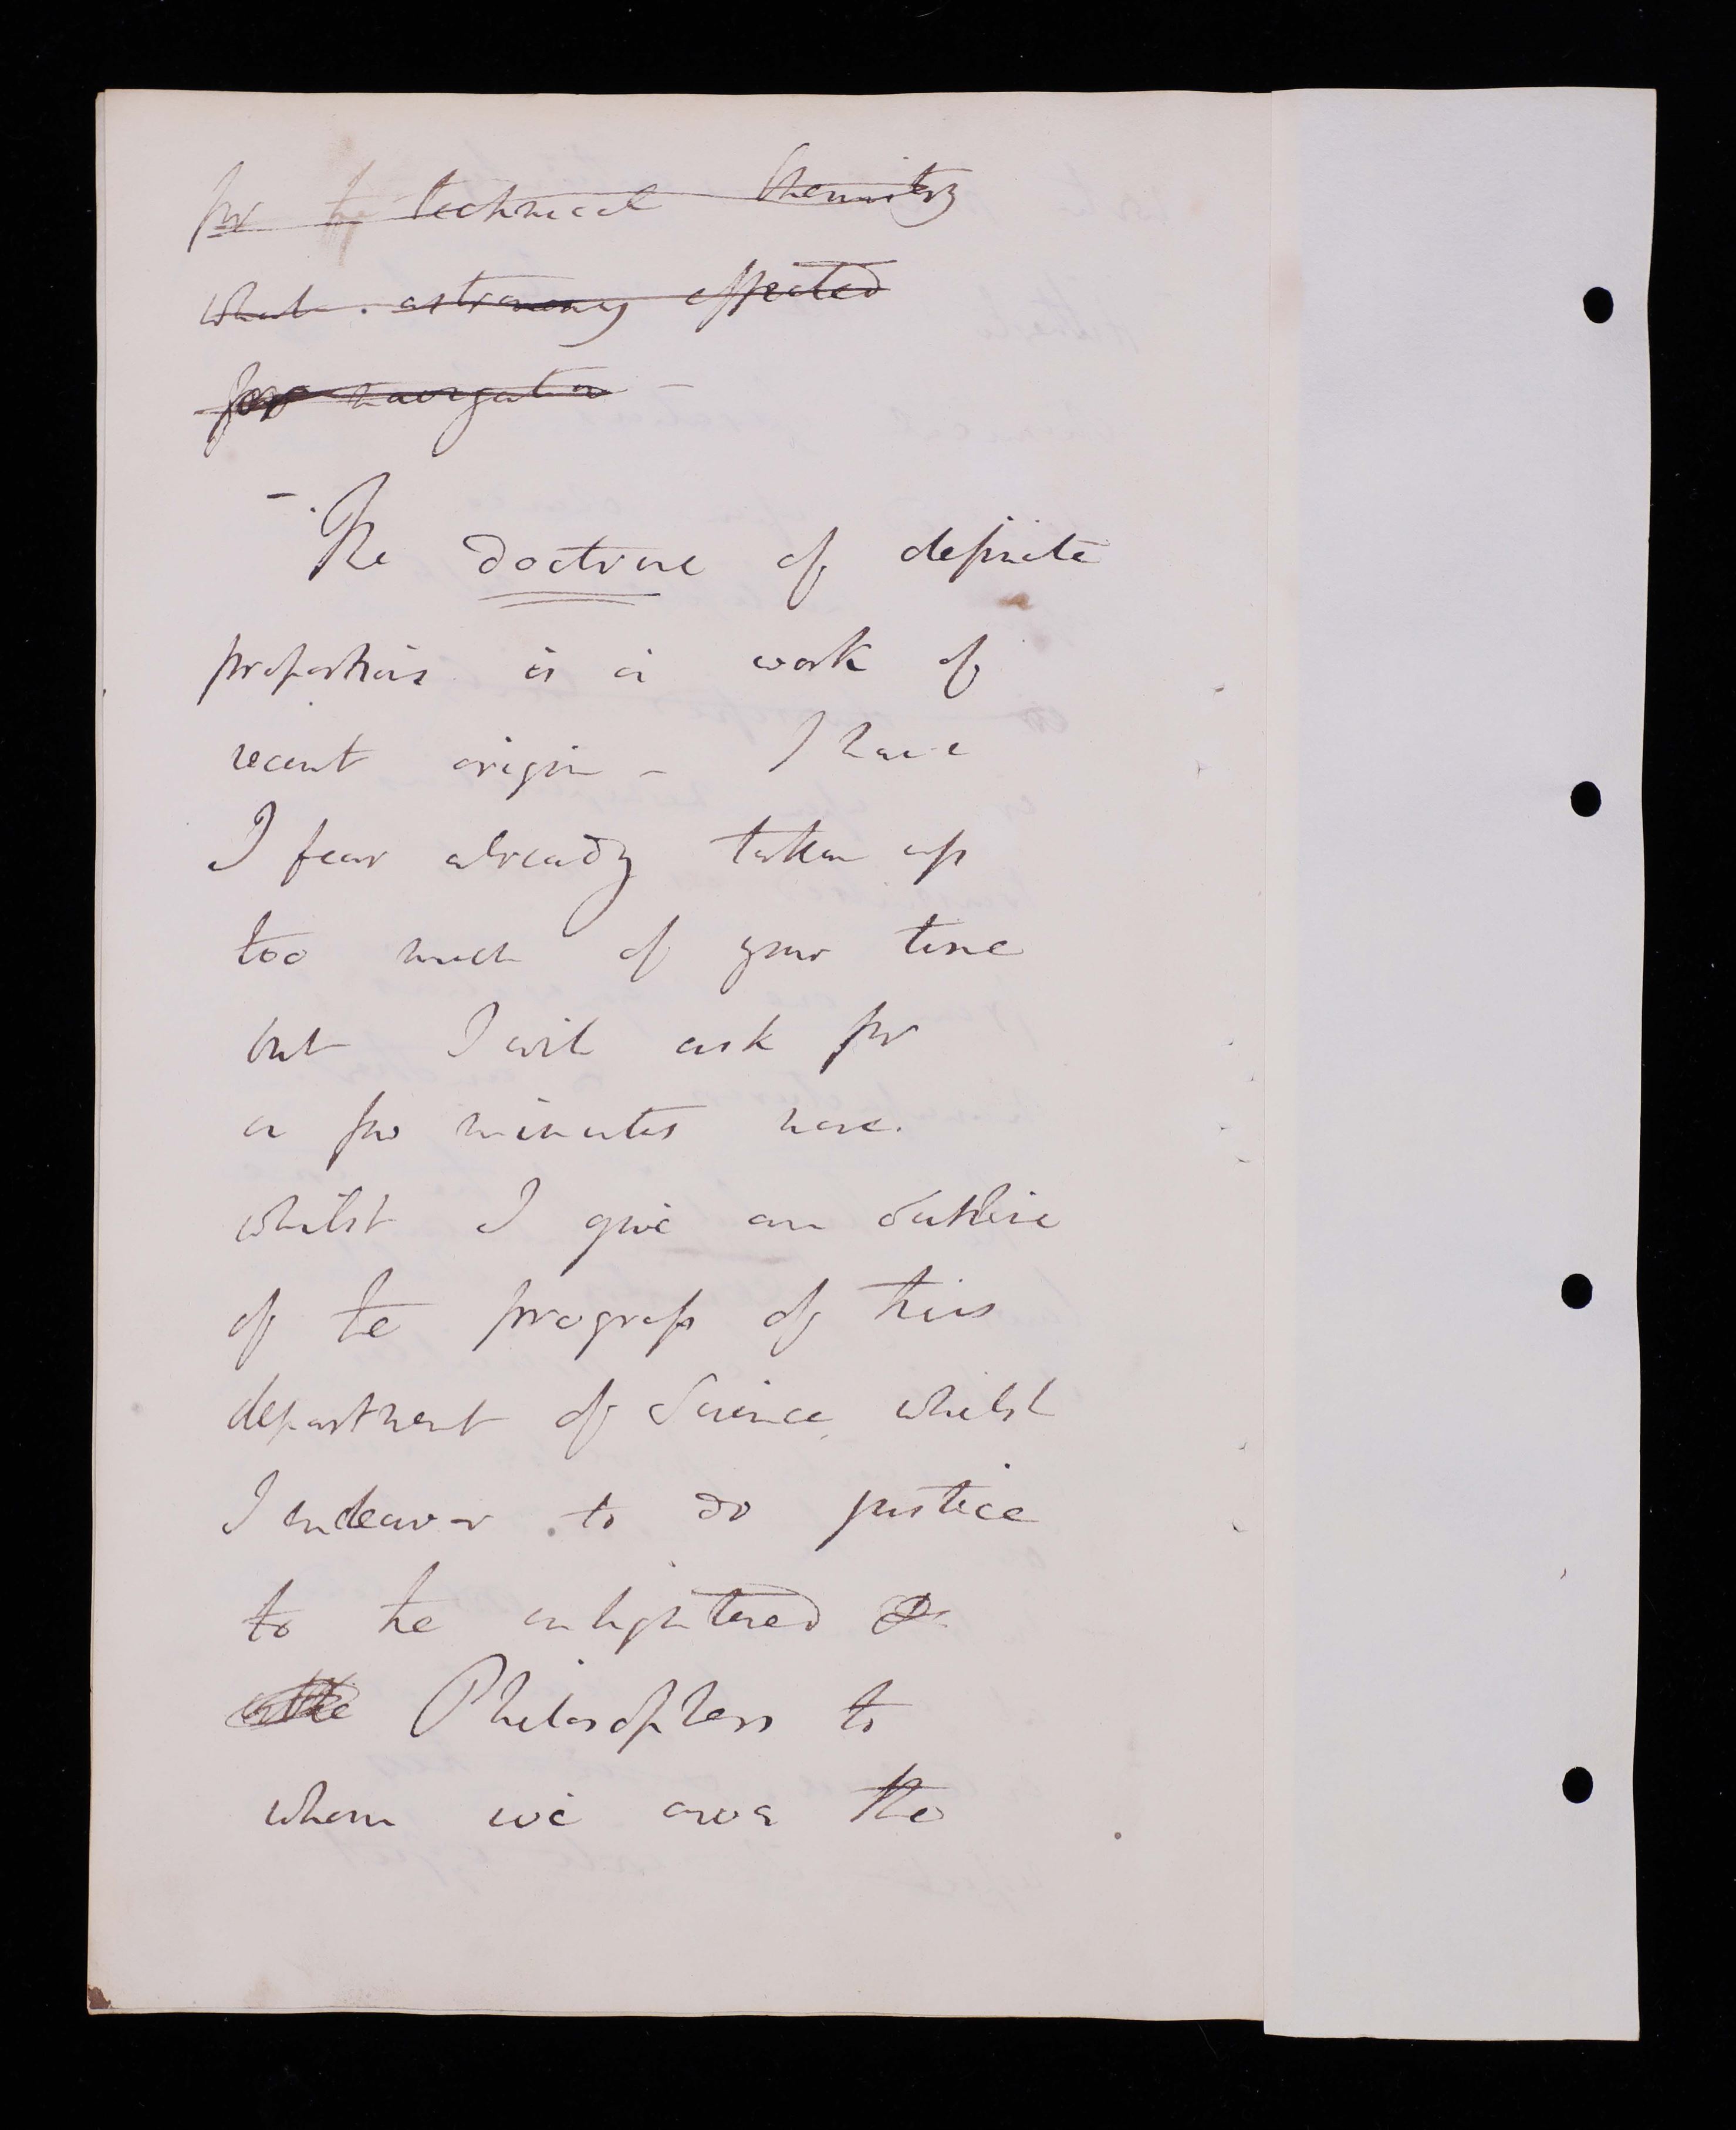 for the technical Chemistry
what astronomy effected
for navigation –
– The doctrine of definite
proportions is a work of
recent origin – I have
I fear already taken up
too much of your time
but I will ask for
a few minutes more.
whilst I give an outline
of the progress of this
department of Science, whilst
I endeavor to do justice
to the enlightened
Philosophers to
whom we owe the